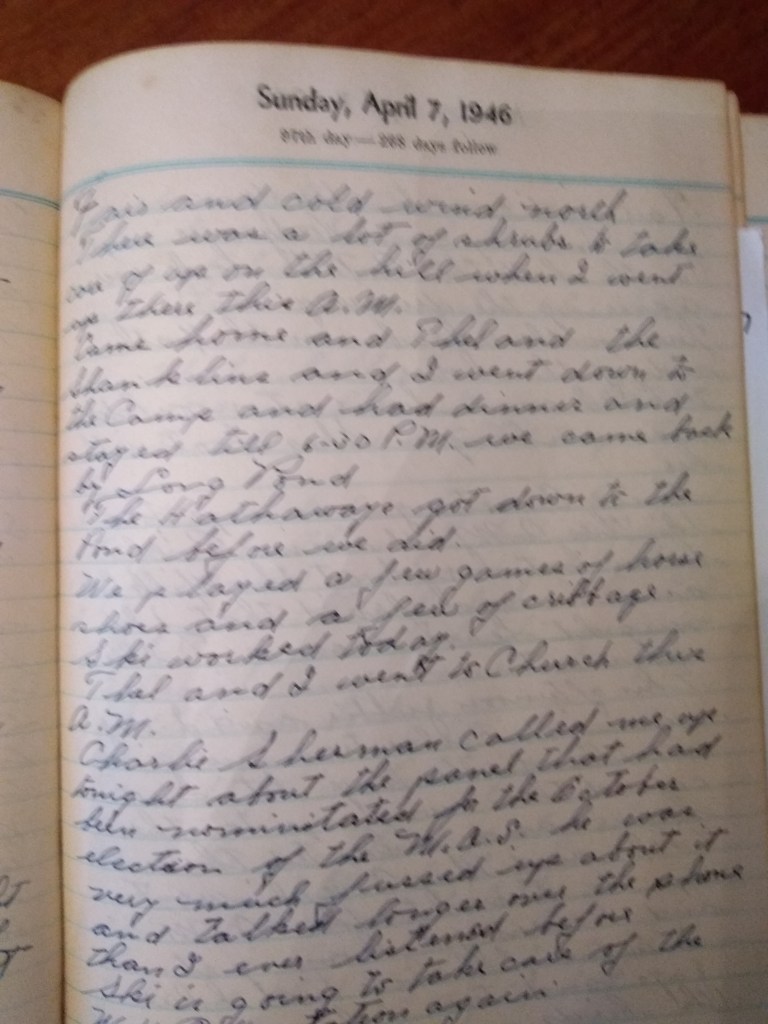 Sunday, April 7, 1946
97th day — 268 days follow
Fair and cold wind north
There was a lot of shrubs to take
care of up on the hill when I went
up there this A.M.
Came home and Thel and the
Shanklins and I went down to
the Camp and had dinner and
stayed till 6-30 P.M. we came back
by Long Pond
The Hathaways got down to the
Pond before we did.
We played a few games of horse
shoes and a few of cribbage.
Ski worked today.
Thel and I went to Church this
A.M.
Charlie Sherman called me up
tonight about the panel that had
been nominitated for the October
election of the M.A.S. he was
very much fussed up about it
and talked longer over the phone
than I ever listened before
Ski is going to take care of the
again.